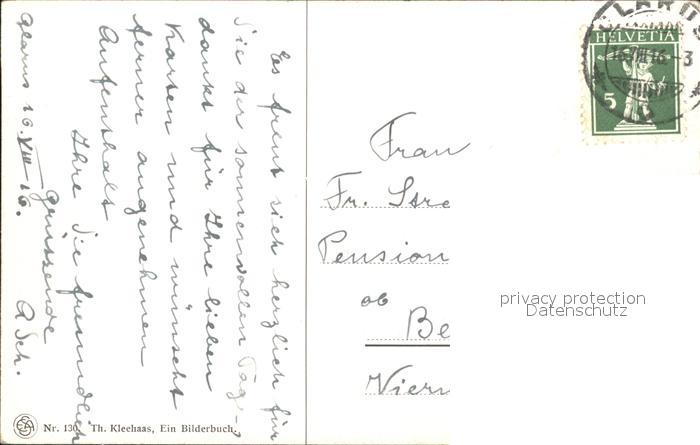 Es freut sich herzlich für
Sie der sonnenvollen Tage,
dankt für Ihre lieben
Karten und wünscht
ferner angenehmen
Aufenthalt
Ihre Sie freundlich
grüssende
A Sch.
Glarus 16. VIII 16.
Nr. 130. Th. Kleehaas, Ein Bilderbuch.
GLARUS
HELVETIA
16.VIII.16.-3
5
Frau
Fr. Stre
Pension
ob
Be
Vierw
privacy protection
Datenschutz